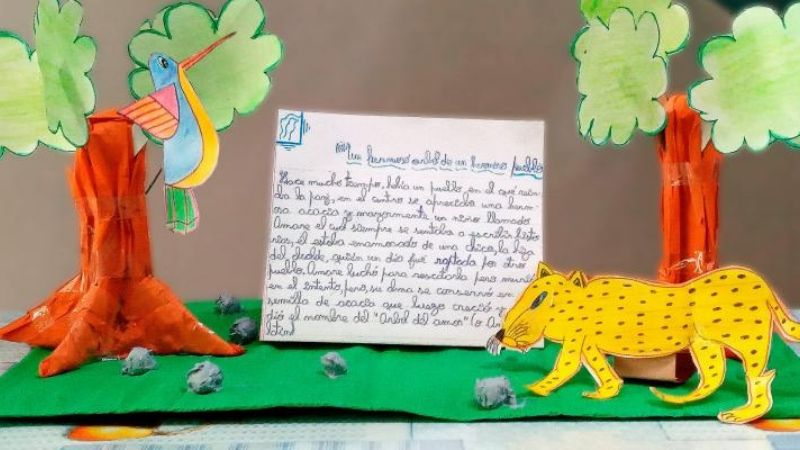 Un hermoso árbol de un hermoso pueblo
Hace mucho tiempo, había un pueblo en el que reina-
ba la paz, en el centro se apreciaba una herm-
osa acacia y mayormente un niño llamado
Amare el cual siempre se sentaba a escribir histo-
rias, él estaba enamorado de una chica, la hija
del alcalde, quién un día fué raptada por otro
pueblo. Amare luchó para rescatarla pero murió
en el intento, pero, su alma se conservó en
semilla de acacia que luego creció y
dió el nombre del "Arbol del amor" (o Am